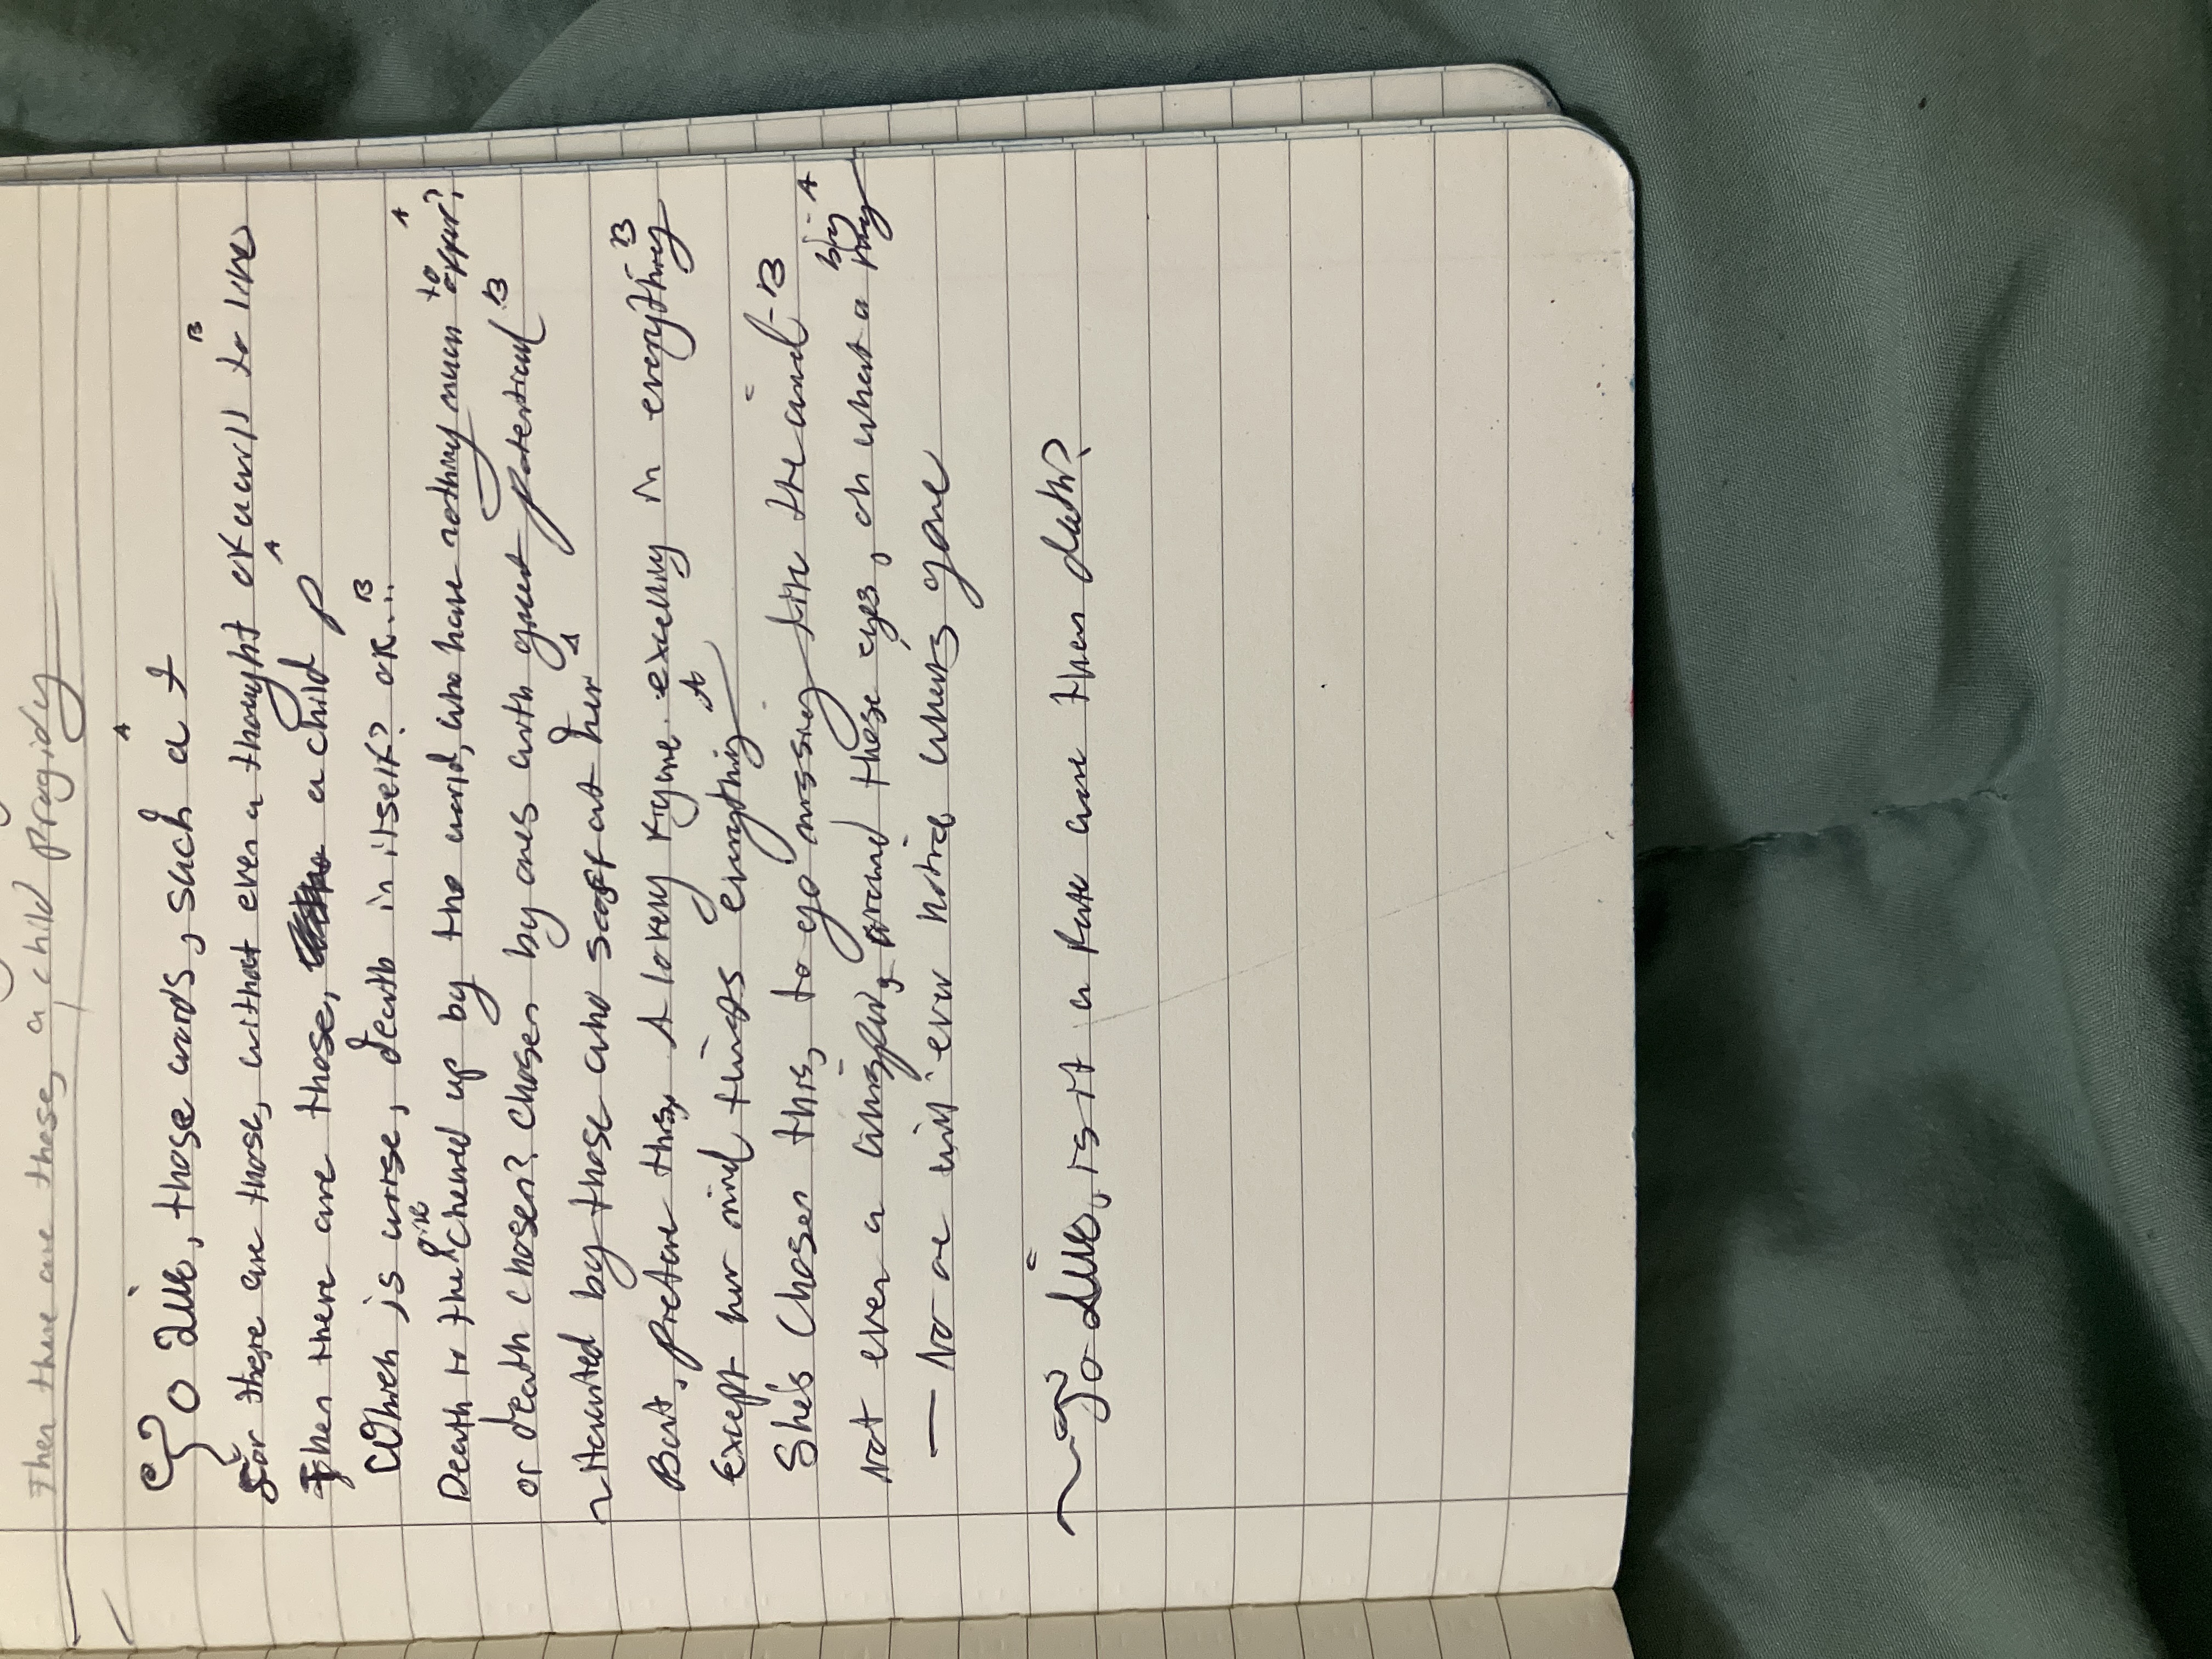 Then there are those, a child prodigidy
A
Go die, those words, such a
B
For there are those, without even a thought or will to live
A
Then there are those, a child
B
Which is worse, death in itself? or...
A
Death to the chewed up by the world, who have nothing more to offer?
B
or death chosen? Chosen by ones with great potential
A
by those who scoff at her
B
But, picture this, A lovely excelling in everything
A
Except her mind things everything
She's chosen this, to go missing like the wind - B
big - A
Not even a whisper, around these eyes, oh what a
— No one will ever notice who's gone
~ go die, is it a fate worse than death?